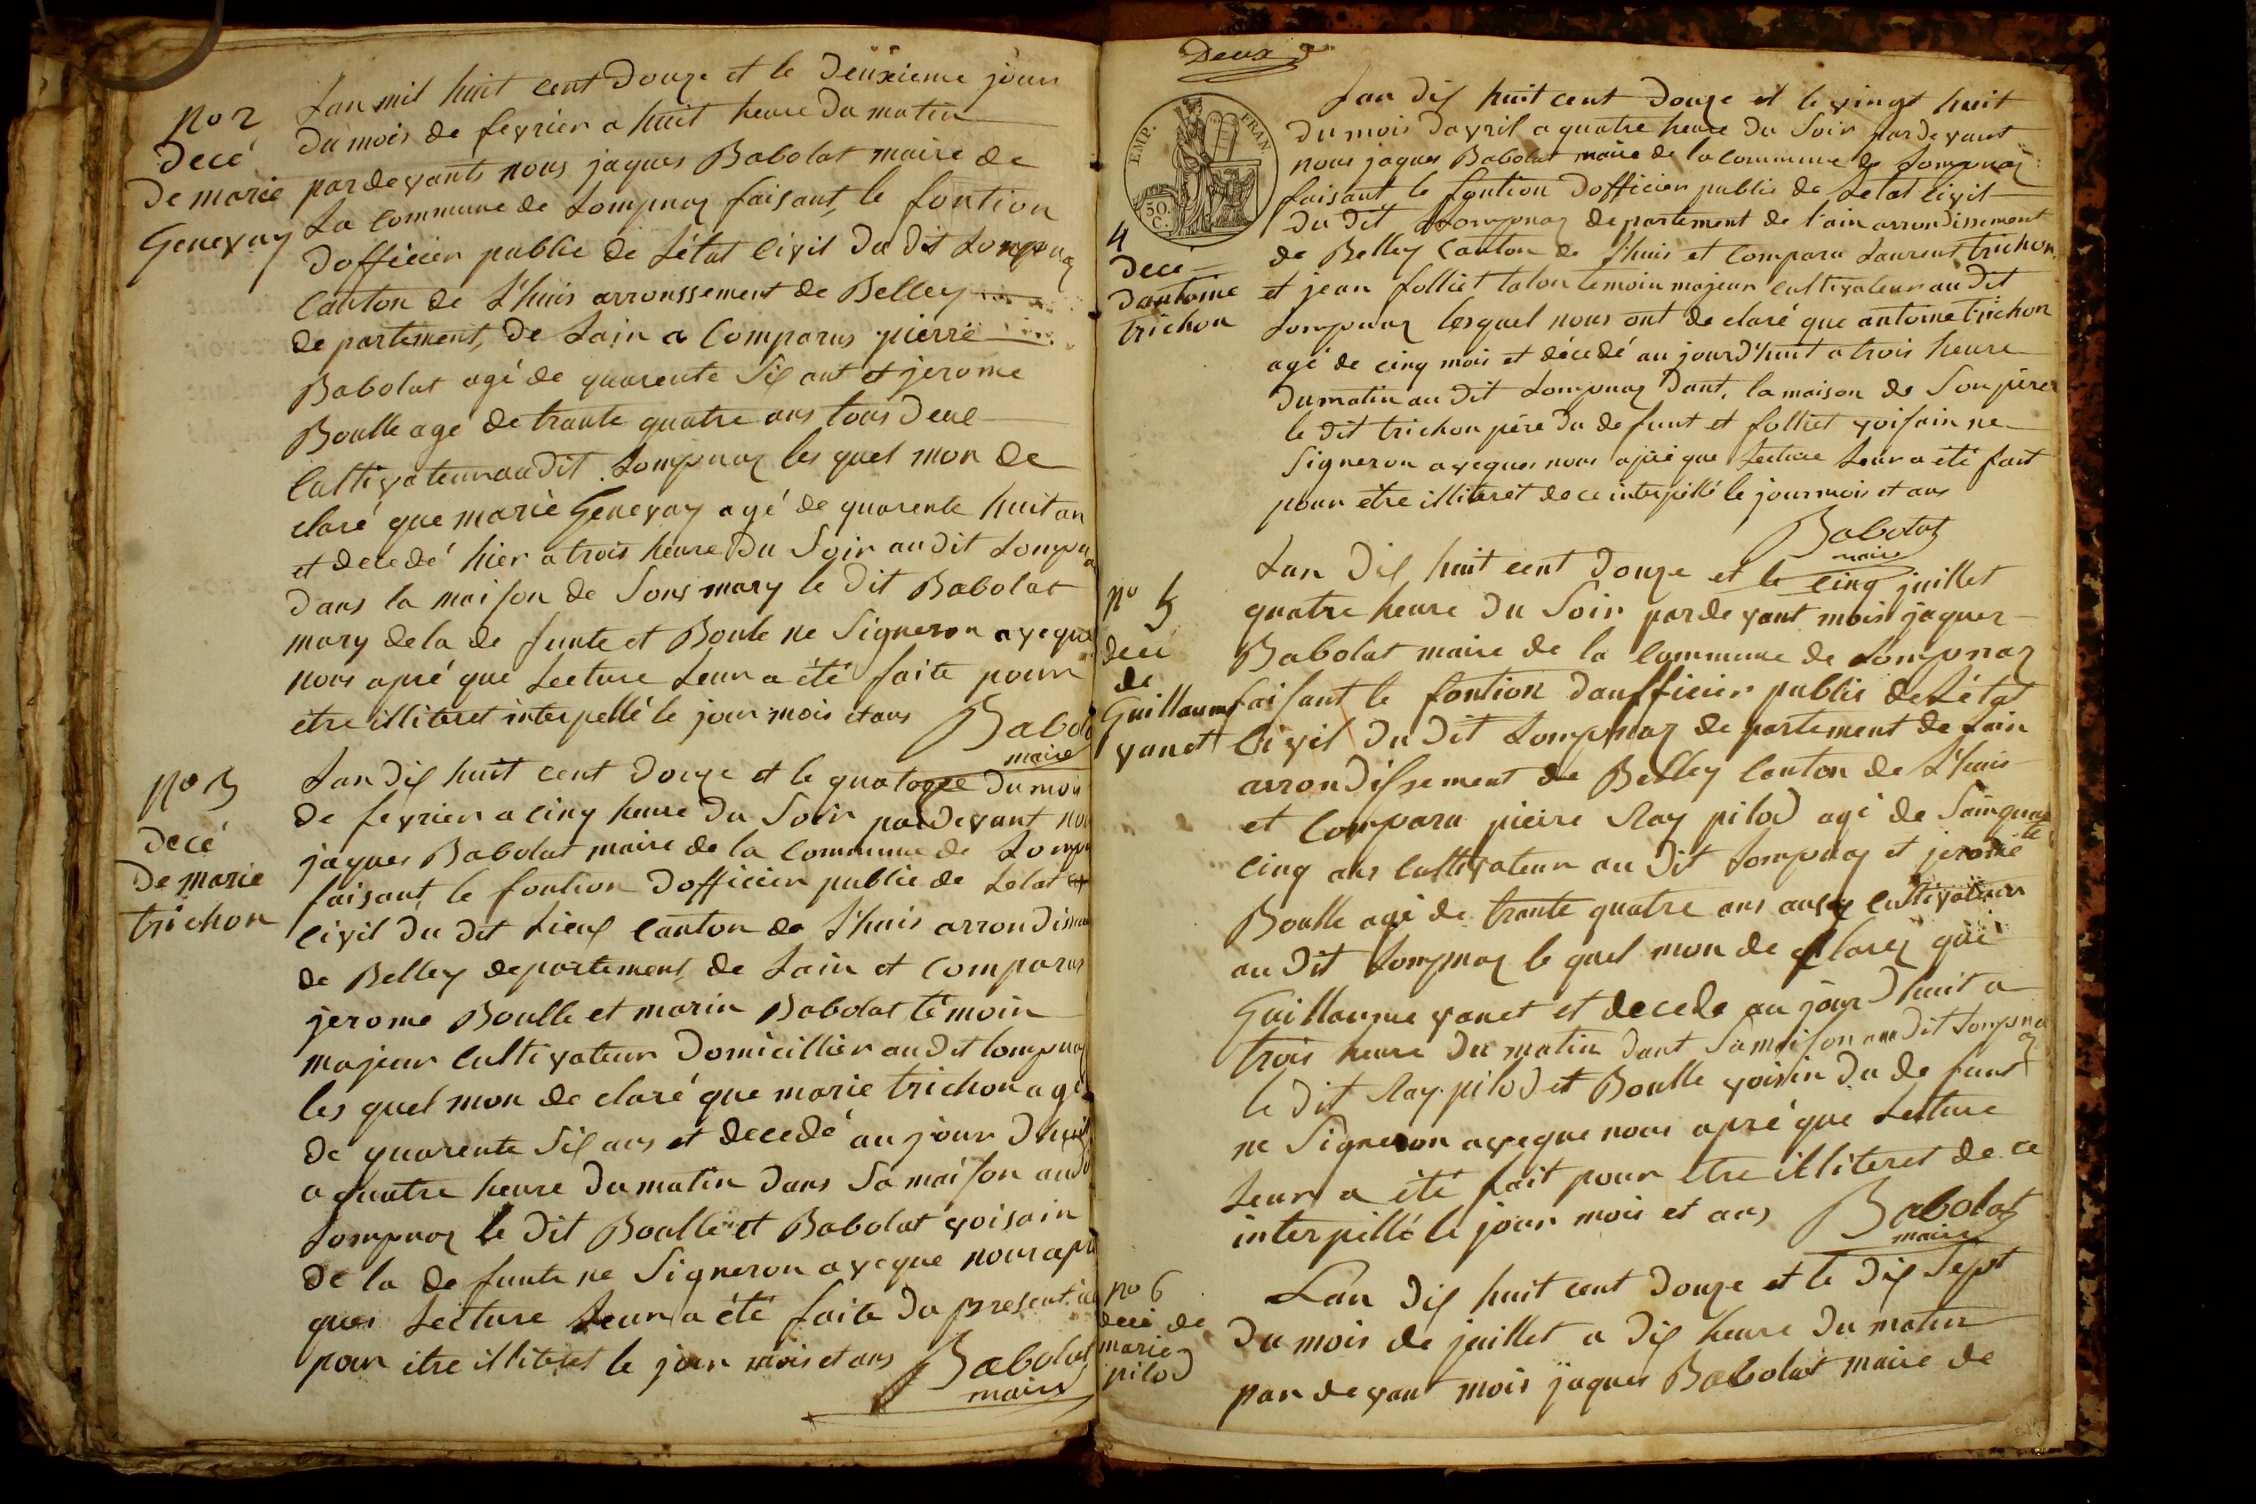 No 2
Decé
De marie
Genevay
Lan mil huit cent Douze et le Deuxieme jour
Du mois de fevrier a huit heure Du matin
pardevants nous jaques Babolat maire de
La commune de Lompnaz faisant le fontion
Dofficier public de Létat Civil Du dit Lompnaz
Canton de Lhuis arronssement de Belley
departement, De Lain a Comparus pierre
Babolat agé de quarente Six ant et jerome
Boulle agé de trante quatre ans tous Deux
Cultivateur audit Lompnaz les quel mon de
claré que marie Genevay agé de quarente huit an
et decedé hier a trois heure Du Soir au dit Lompna
Dans la maison de Sons mary le dit Babolat
mary dela de funte et Boule ne Signeron aveque
nous apré que Lecture Leur a été faite pour
etre illiteret interpellé le jour mois et ans
Babola
maire
No 3
Decé
De marie
trichon
Lan dix huit cent Douze et le quatorze Du mois
de fevrier a cinq heure Du Soir pardevant nou
jaques Babolat maire de la Commune de Lompn
faisant, le fontion Dofficier public de Létat
Civil du dit Lieux Canton de Lhuis arrondisme
de Belley departement, de Lain et Comparus
jerome Boulle et marin Babolat témoin
majeur Cultivateur Domicillier au dit lompnaz
les quel mon de claré que marie trichon agé
de quarente Six ans et decedé au jour Dhuit
a quatre heure Du matin Dans Sa maison audi
Lompnaz le dit Boulle et Babolat voisain
de la de funte ne Signeron aveque nous apr
ques Lecture Leur a été faite Du present
pour etre illiteret le jour mois et ans
Babolat
maire
Deux
EMP. FRAN
50.
C.
4
Dece
Dantoine
trichon
Lan Dix huit cent Douze et le vingt huit
Du mois Davril a quatre heure Du Soir pardevant
nous jaques Babolat maire de la Commune de Lompnaz
faisant, le fontion Dofficier public de Letat Civil
Du dit Lompnaz departement de l'ain arrondissement
de Belley Canton de Lhuis et Compara Laurent trichon
et jean folliet talon temoin majeur Cultivateur au dit
Lompnaz lesquel nous ont de claré que antoine trichon
agé de cinq mois et décedé au jourd'huit a trois heure
Dumatin au Dit Lompnaz Dant, la maison de Son père
le dit trichon père Du de funt et folliet voisain ne
Signeron aveques nous apré que Lecture Leur a été fait
pour etre illiteret de ce interpellé le jour mois et ans
Babolat
maire
No 5
Decé
de
Guillaume
vanet
Lan Dix huit cent Douze et le cinq juillet
quatre heure Du Soir pardevant mois jaques
Babolat maire de la Commune de Lompnaz
faisant le fontion Daufficier public de Létat
Civil Du Dit Lompnaz departement de Lain
arrondissement de Belley Canton de Lhuis
et Compara pierre Ray pilod agé de Sainquante
cinq ans Cultivateur au Dit Lompnaz et jerome
Boulle agé de trante quatre ans aussy Cultivateur
au Dit Lompnaz le quel mon de clarez que
Guillaume vanet et decede au jour Dhuit a
trois heure Du matin Dant Sa maison au Dit Lompnaz
le Dit Ray pilod et Boulle voisin Du de funt
ne Signeron aveque nous apré que Lecture
Leur a été fait pour etre illiteret de ce
interpellé le jour mois et ans
Babolat
maire
No 6
decé de
marie
pilod
Lan Dix huit cent Douze et le Dix Sept
Du mois de juillet a Dix heure Du matin
par devant mois jaques Babolat maire de